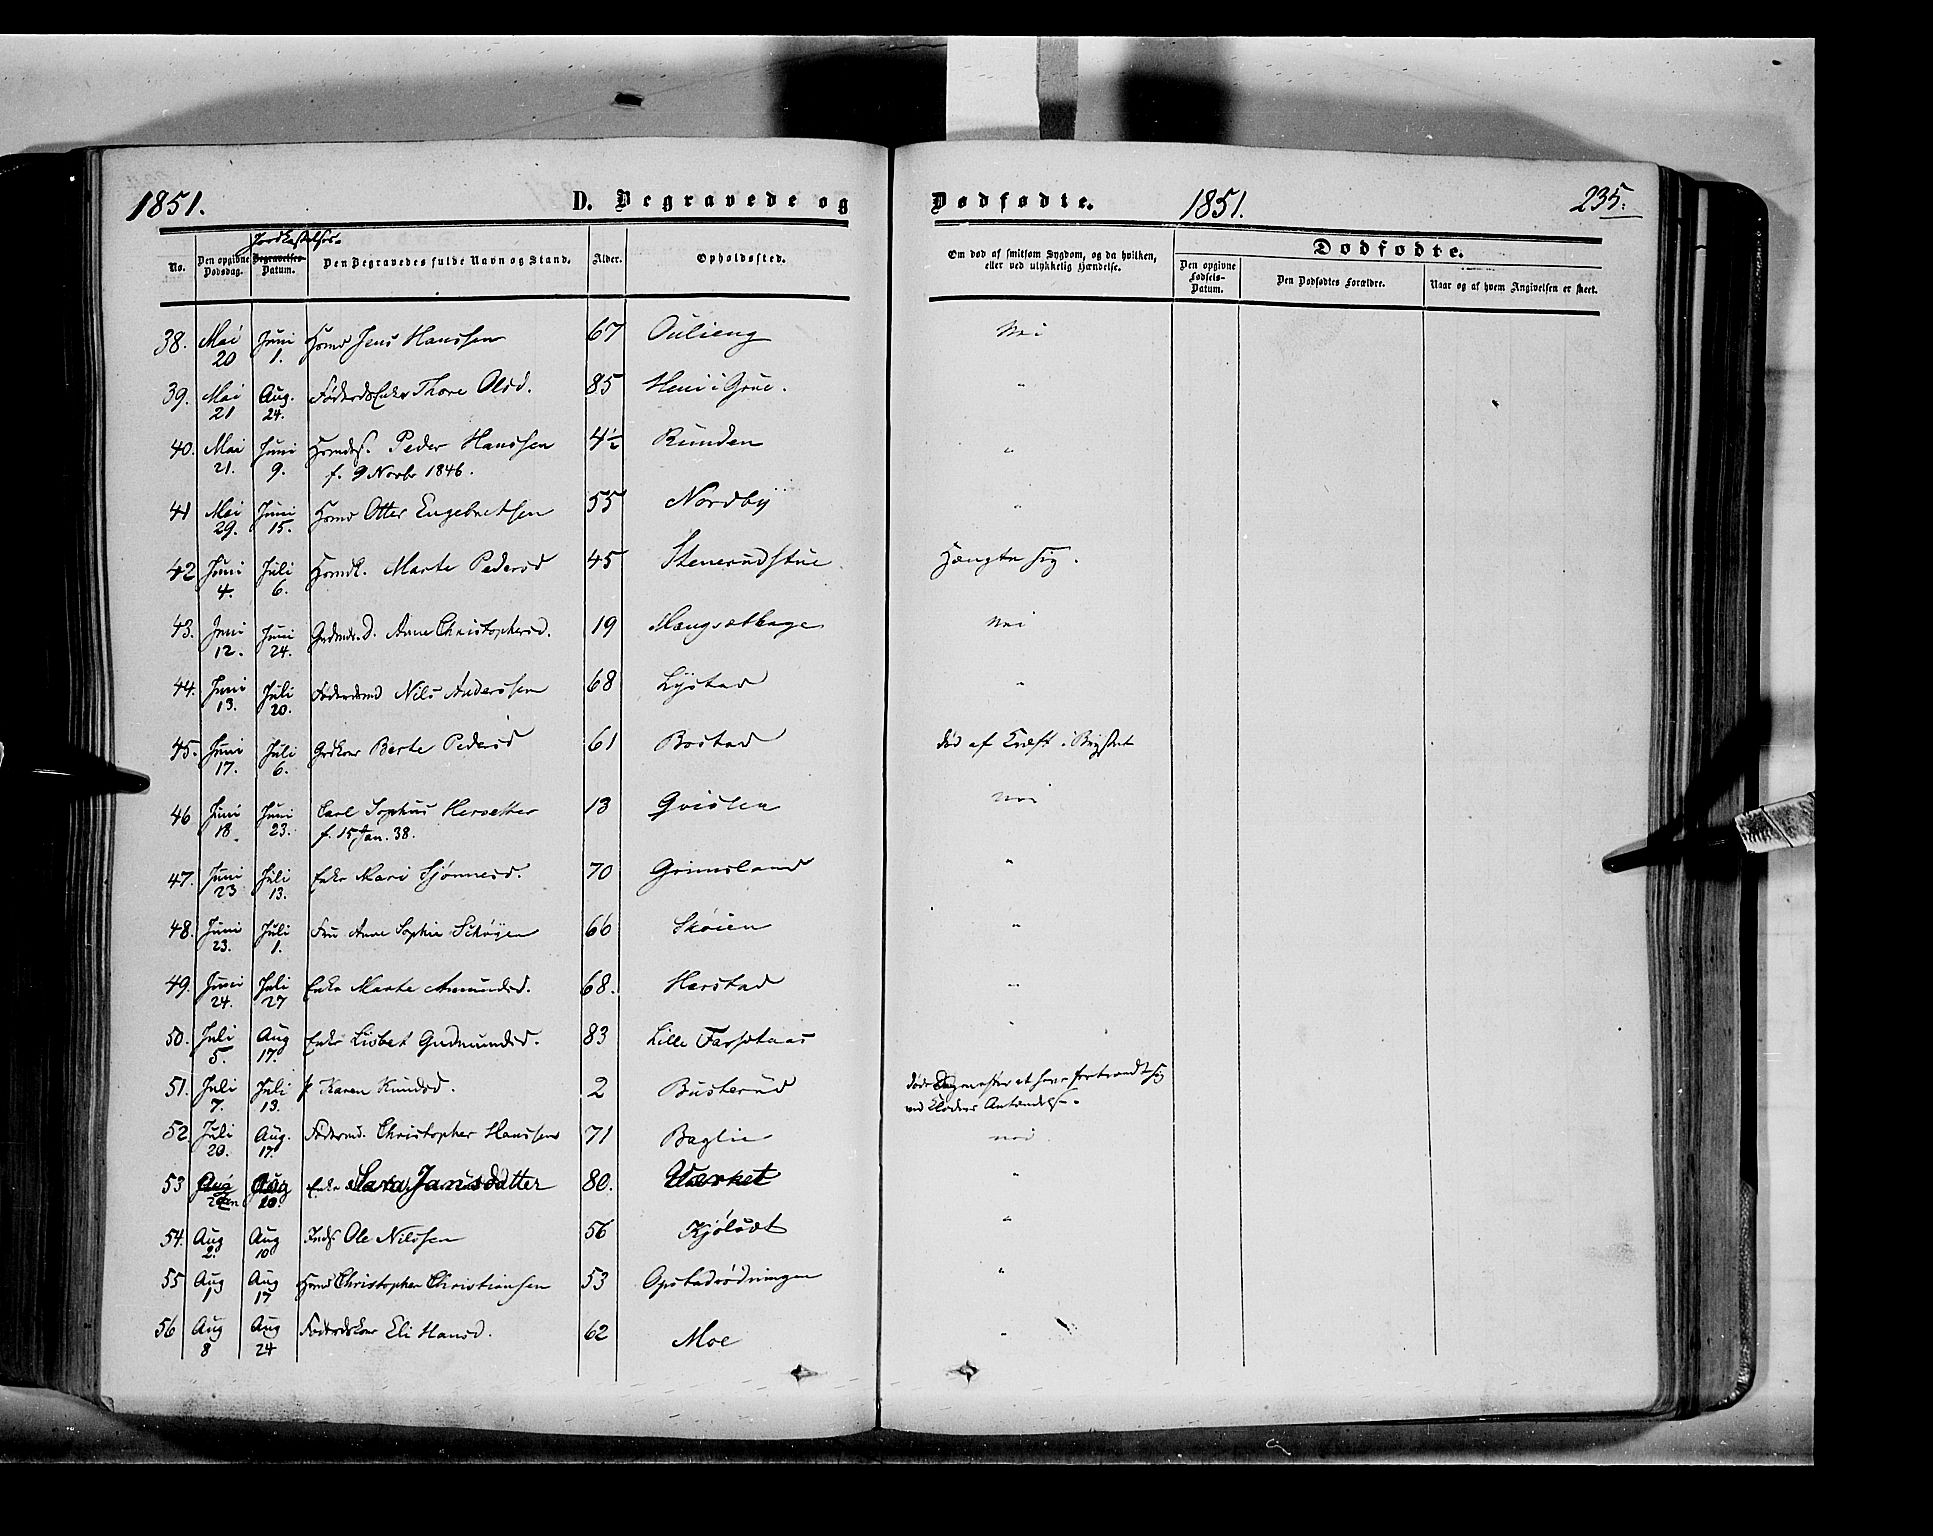 1851. D. Begravede og Dødfødte. 1851. 235.
Jordkastelses-
No. Den opgivne Dødsdag. Begravelses-Datum. Den Begravedes fulde Navn og Stand. Alder. Opholdssted. Om død af smitsom Sygdom, og da hvilken, eller ved ulykkelig Hændelse. Dødfødte. Den opgivne Fødsels-Datum. Den Dødfødtes Forældre. Naar og af hvem Angivelsen er skeet.
38. Mai 20 Juni 1. Jens Hanssen 67 Oulieng Nei
39. Mai 21 Aug. 24. Thore Olsd. 85 Heni i Grue. "
40. Mai 21. Juni 9. Peder Hanssen 4½ Runden "
f. 9 Novbr 1846.
41 Mai 29. Juni 15. Otter Engebretsen 55 Nordby "
42 Juni 4. Juli 6. Marte Pedersd 45 Stenerudstue Hængte sig.
43. Juni 12. Juni 24. Anne Christophersd. 19 Mangsethage Nei
44. Juni 13. Juli 20. Nils Anderssen 68 Lystad "
45. Juni 17. Juli 6. Berte Pedersd 61 Bostad død af Kræft i Brystet
46 Juni 18. Juni 23. Carl Sophus 13 Qvislen nei
f. 15 Jan. 38.
47. Juni 23 Juli 13. Enke Mari Sjønnesd. 70 Grinsland "
48. Juni 23. Juli 1. Fru Anne Sophie Schøyen 66 Skøien "
49. Juni 24. Juli 27 Enke Marte Amundsd. 68. Harstad "
50. Juli 5. Aug 17. Enke Lisbet Gudmundsd. 83 Lille Farsetaas "
51. Juli 7. Juli 13. p Karen Knudsd. 2 Busterud døde efter at have forbrændt sig
ved Klædres Antændelse.
52. Juli 20. Aug. 17. Christopher Hanssen 71 Baglie nei
53 Aug Aug 10. Enke Sara Jansdatter 80. Værket "
54. Aug 2. Aug 10 Inds Ole Nilssen 56 Kjølsæt "
55 Aug 1 Aug 17 Christopher Christiansen 53 Opstadrødningen "
56 Aug 8 Aug 24 Eli Hansd. 62 Moe "